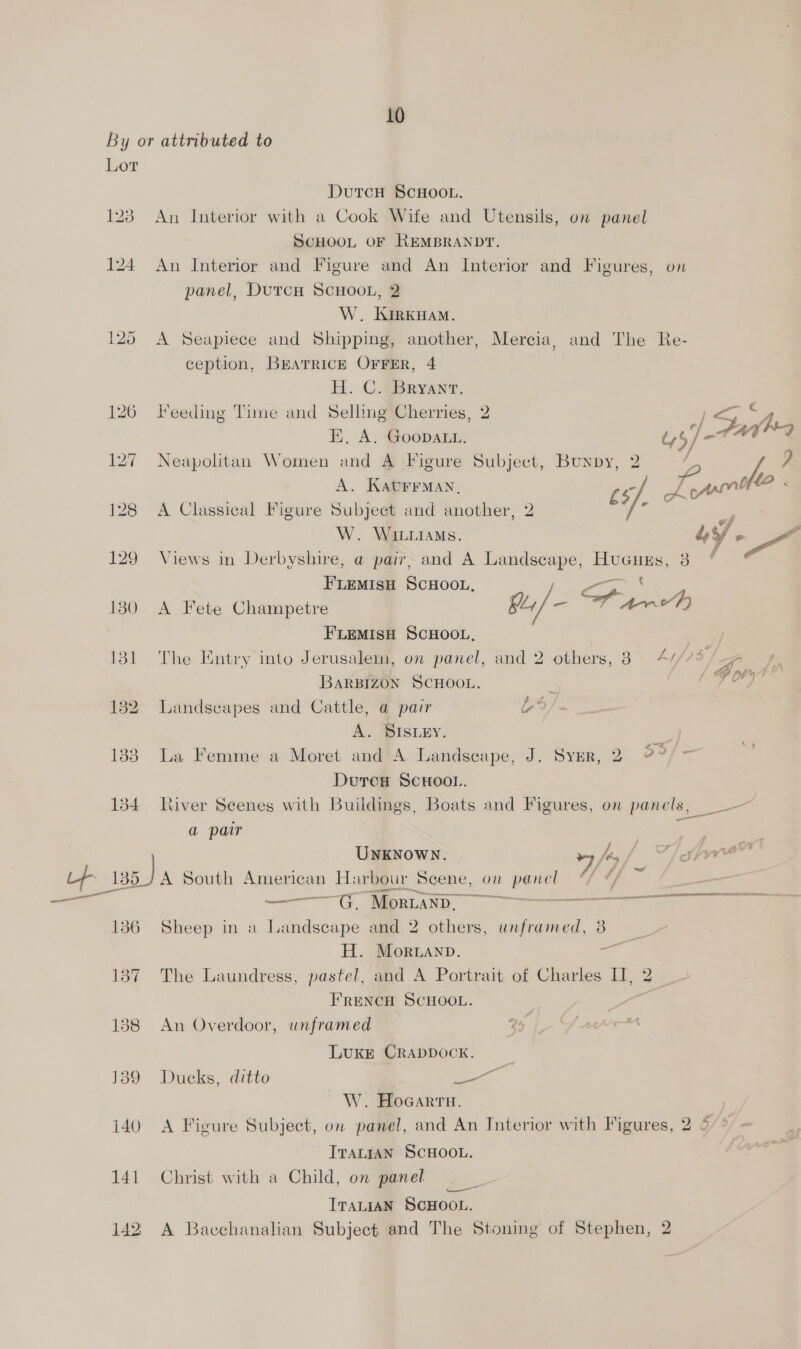 10
By or attributed to
Lot
DUTCH SCHOOL.
123 An Interior with a Cook Wife and Utensils, on panel
SCHOOL OF REMBRANDT.
124 An Interior and Figure and An Interior and Figures, on
panel, DUTCH SCHOOL, 2
W. KIRKHAM.
125 A Seapiece and Shipping, another, Mercia, and The Re-
ception, BEATRICE OFFER, 4
H. C. BRYANT.
126 Feeding Time and Selling Cherries, 2
E. A. GOODALL.
127 Neapolitan Women and A Figure Subject, BUNDY, 2
A. KAUFFMAN,
128 A Classical Figure Subject and another, 2
W. WILLIAMS.
129 Views in Derbyshire, a pair, and A Landscape, HUGHES, 3
FLEMISH SCHOOL,
130 A Fete Champetre
FLEMISH SCHOOL,
131 The Entry into Jerusalem, on panel, and 2 others, 3
BARBIZON SCHOOL.
132 Landscapes and Cattle, a pair
A. SISLEY.
133 La Femme a Moret and A Landscape, J. SYER, 2
DUTCH SCHOOL.
134 River Scenes with Buildings, Boats and Figures, on panels,
a pair
UNKNOWN.
135 A South American Harbour Scene, on panel
G. MORLAND,
136 Sheep in a Landscape and 2 others, unframed, 3
H. MORLAND.
137 The Laundress, pastel, and A Portrait of Charles II, 2
FRENCH SCHOOL.
138 An Overdoor, unframed
LUKE CRADDOCK.
139 Ducks, ditto
W. HOGARTH.
140 A Figure Subject, on panel, and An Interior with Figures, 2
ITALIAN SCHOOL.
141 Christ with a Child, on panel
ITALIAN SCHOOL.
142 A Bacchanalian Subject and The Stoning of Stephen, 2